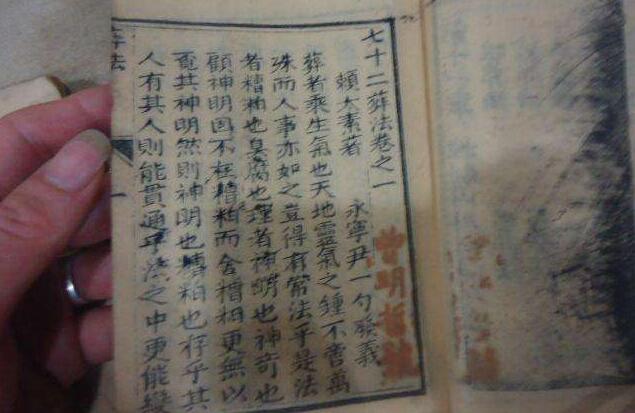 七十二葬法卷之一
賴太素著 永寧尹一勺發義
葬者乘生氣也天地靈氣之鍾不啻萬
殊而人事亦如之豈得有常法乎是法
者糟粕也臭腐也理者神明也神奇也
顧神明固不在糟粕而舍糟粕更無以
覔其神明然則神明也糟粕也存乎其
人有其人則能貫通乎法之中更能變
葬法
一
曾明